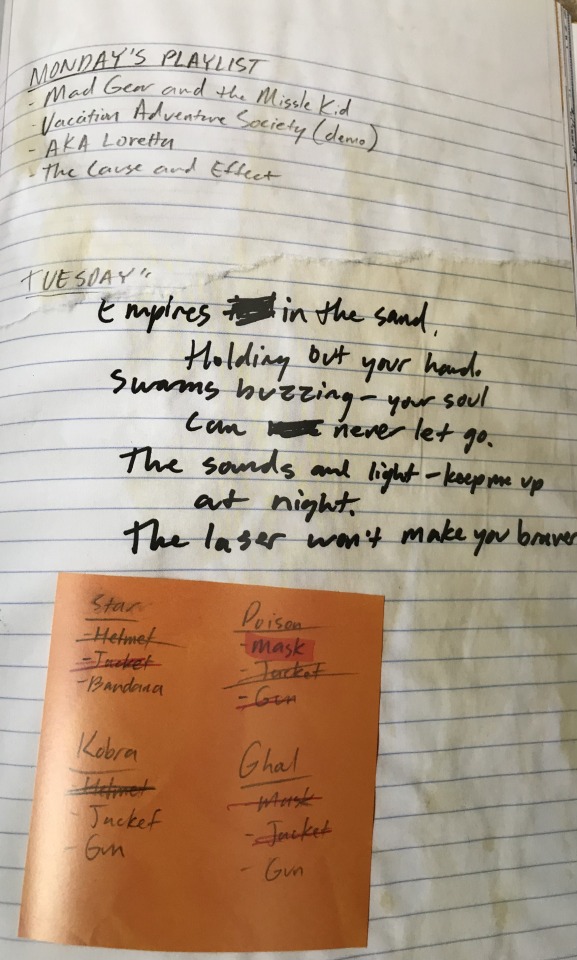 MONDAY'S PLAYLIST
- Mad Gear and the Missle Kid
- Vacation Adventure Society (demo)
- AKA Loretta
- The Cause and Effect
TUESDAY'S
Empires in the sand,
Holding out your hand.
Swarms buzzing - your soul
can never let go.
The sounds and light - keep me up
at night.
The laser won't make you braver
Star
- Helmet
- Jacket
- Bandana
Poison
- Mask
- Jacket
- Gun
Kobra
- Helmet
- Jacket
- Gun
Ghal
- Mask
- Jacket
- Gun